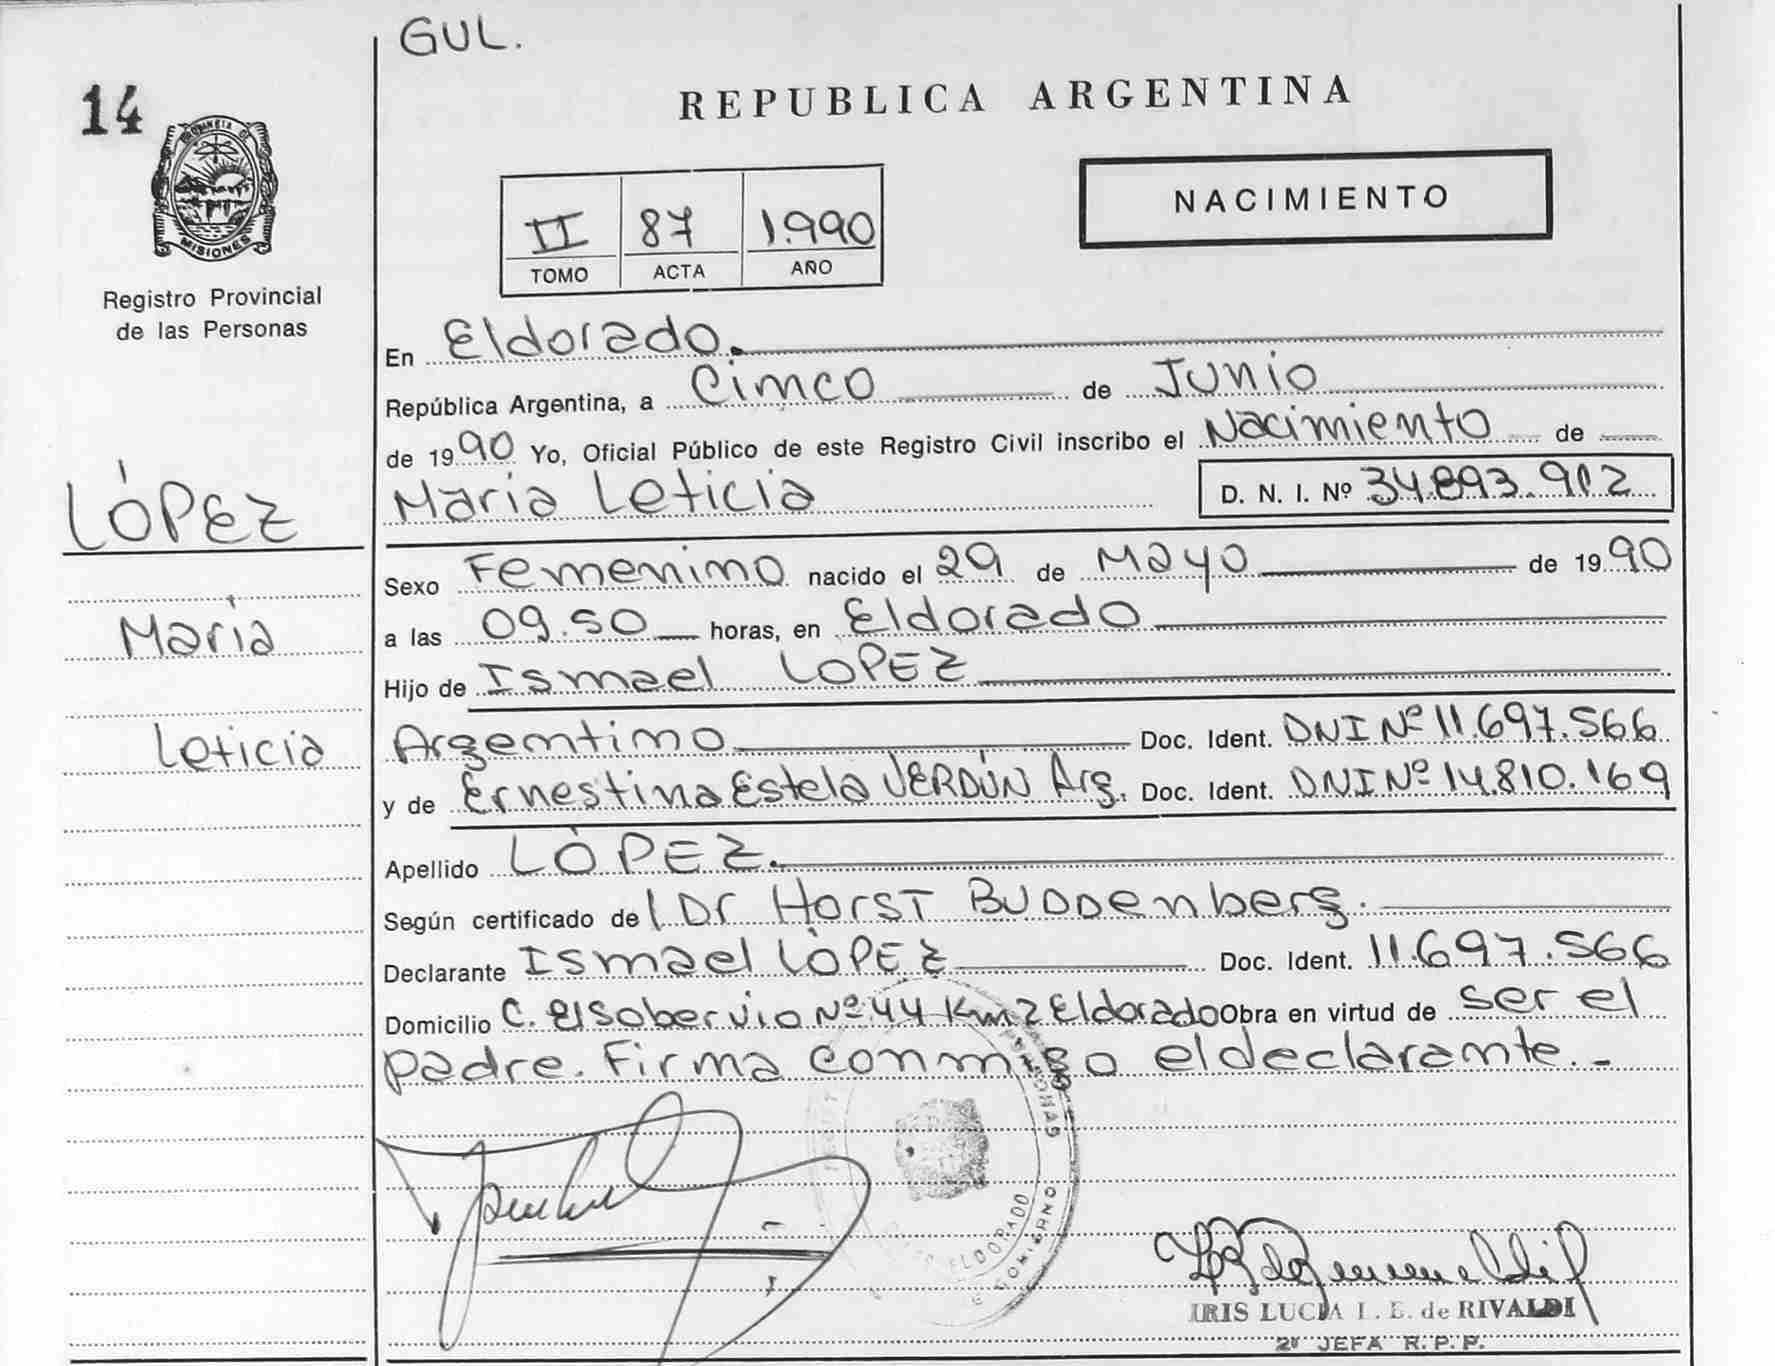 GUL.
14
REPUBLICA ARGENTINA
PROVINCIA DE
MISIONES
NACIMIENTO
II 87 1.990
TOMO ACTA AÑO
Registro Provincial
de las Personas
En Eldorado.
República Argentina, a Cinco de Junio
de 1990 Yo, Oficial Público de este Registro Civil inscribo el Nacimiento de
María Leticia D. N. I. Nº 34.893.912
LÓPEZ
María
Leticia
Sexo Femenino nacido el 29 de Mayo de 1990
a las 09.50 horas, en Eldorado
Hijo de Ismael LOPEZ
Argentino Doc. Ident. DNI Nº 11.697.566
y de Ernestina Estela VERDÚN Arg. Doc. Ident. DNI Nº 14.810.169
Apellido LÓPEZ.
Según certificado del Dr Horst Buddenberg.
Declarante Ismael LÓPEZ Doc. Ident. 11.697.566
Domicilio C. El Sobervio Nº 44 Km 2 Eldorado Obra en virtud de ser el
padre. Firma conmigo el declarante.-
ELDORADO
IRIS LUCIA I. B. de RIVALDI
2º JEFA R.P.P.